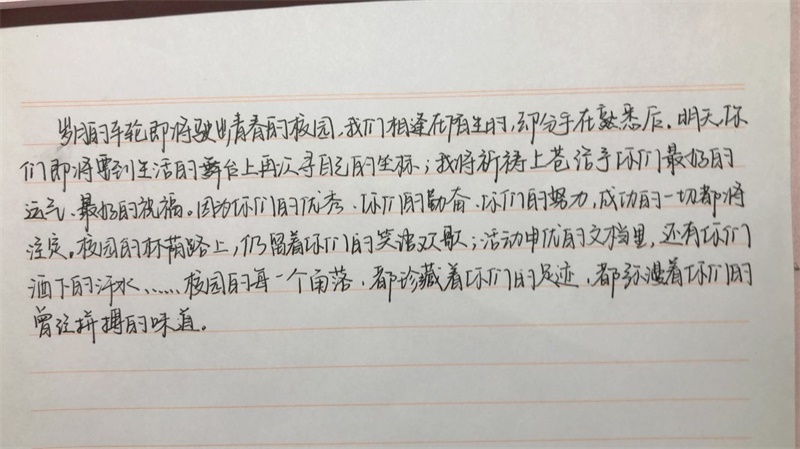 岁月的车轮即将驶出青春的校园,我们相逢在陌生时,却分手在熟悉后。明天,你
们即将要到生活的舞台上再次寻自己的坐标;我将祈祷上苍给予你们最好的
运气、最好的祝福。因为你们的优秀、你们的勤奋、你们的努力,成功的一切都将
注定。校园的林荫路上,仍留着你们的笑语欢歌;活动申优的文档里,还有你们
洒下的汗水......校园的每一个角落,都珍藏着你们的足迹,都弥漫着你们的
曾经拼搏的味道。